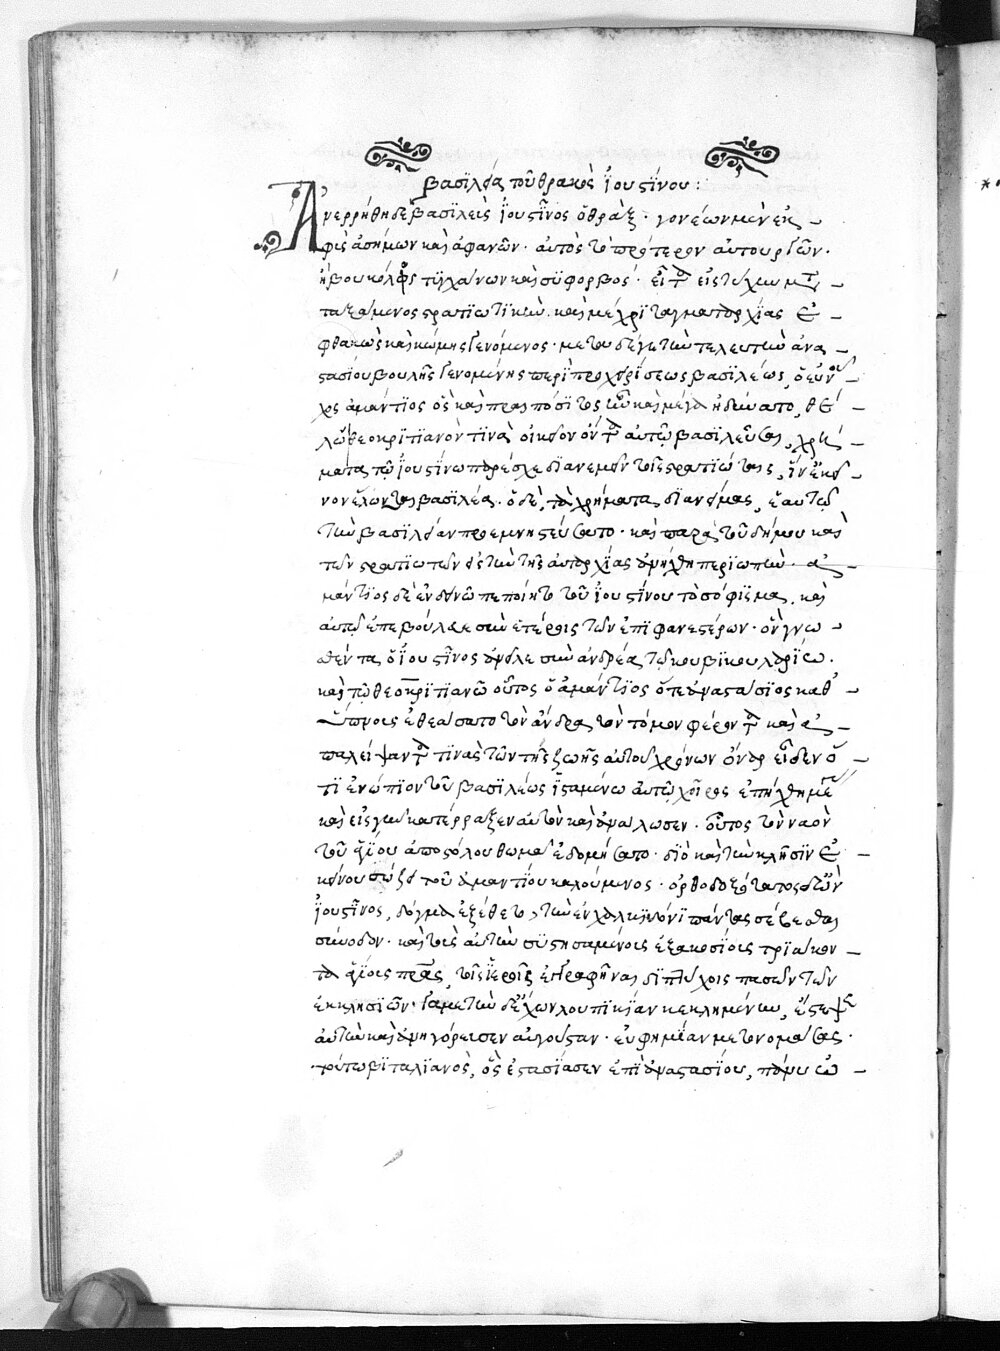 βασϊλεία τοῦ θρακὸς ἰουστίνου :
Ἀνερρήθη δὲ βασϊλεὺς ἰουστῖνος ὁ θρὰξ · γονέων μὲν ἐκ
φὺς ἀσήμων καὶ ἀφανῶν · αὐτὸς τὸ πρότερον αὐτουργῶν ·
ἢ βουκόλος τϋγχάνων καὶ σϋφορβός · εἶτα εἰς τύχην μετα
ταξάμενος στρατϊωτϊκὴν · καὶ μέχρϊ ταγματαρχίας ἐ
φθακὼς καὶ κόμης γενόμενος · μετὰ δέ γε τὴν τελευτὴν ἀνα
στασίου βουλῆς γενομένης περὶ προχειρίσεως βασϊλέως, ὁ εὐνοῦ
χος ἀμάντϊος ὃς καὶ πραιπόσϊτος ἦν καὶ μέγα ἠδύνατο, θέ
λων θεοκρϊτϊανόν τϊνα οἰκεῖον ὄντα αὐτῷ βασϊλεῦσαι, χρή
ματα τῷ ἰουστίνω παρέσχε δϊανεμεῖν τοῖς στρατϊώταις, ἵν' ἐκεῖ
νον ἕλωνται βασϊλέα · ὁ δὲ, τὰ χρήματα δϊανείμας, ἑαυτῶ
τὴν βασϊλείαν προεμνηστεύσατο · καὶ παρὰ τοῦ δήμου καὶ
τῶν στρατϊωτῶν εἰς τὴν τῆς αὐταρχίας ἀνήχθη περϊωπὴν · ἀ
μάντϊος δὲ ἐν δεινῶ πεποίητο τοῦ ἰουστίνου τὸ σόφϊσμα, καὶ
αὐτῶ ἐπεβούλευε σὺν ἑτέροις τῶν ἐπϊφανεστέρων · οὓς γνω
σθέντας ὁ ἰουστῖνος ἀνεῖλε σὺν ἀνδρέα τῶ κουβϊκουλαρίω ·
καὶ τῷ θεοκρϊτϊανῶ οὗτος ὁ ἀμάντϊος ὅτε ἀναστάσϊος καθ'
ὕπνους ἐθεάσατο τὸν ἄνδρα τὸν τόμον φέροντα καὶ ἀ
παλείψαντά τϊνας τῶν τῆς ζωῆς αὐτοῦ χρόνων ὄναρ εἶδεν ὅ
τϊ ἐνώπϊον τοῦ βασϊλέως ἱσταμένω αὐτῷ χοῖρος ἐπήχθη μέγας
καὶ εἰς γῆν κατέρραξεν αὐτὸν καὶ ἀνάλωσεν · οὗτος τὸν ναὸν
τοῦ ἁγίου ἀποστόλου θωμᾶ ἐδομήσατο · δϊὸ καὶ τὴν κλῆσϊν ἐ
κείνου σώζει τοῦ ἀμαντίου καλούμενος · ὀρθοδοξότατος δ' ὢν
ἰουστῖνος, δόγμα ἐξέθετο, τὴν ἐν χαλκηδόνϊ πάντας σέβεσθαι
σύνοδον · καὶ τοὺς αὐτὴν σϋστησαμένους ἑξακοσίους τρϊάκον
τα ἁγίους πατέρας, τοῖς ἱεροῖς ἐγγραφῆναι δϊπτύχοις πασῶν τῶν
ἐκκλησϊῶν · γαμετὴν δὲ ἔχων λουπϊκίαν κεκλημένην, ἔστεψεν
αὐτὴν καὶ ἀνηγόρευσεν αὐγοῦσταν · εὐφημίαν μετονομάσας ·
τούτω βϊταλϊανὸς, ὃς ἐστασίασεν ἐπὶ ἀναστασίου, πάνυ ὠ